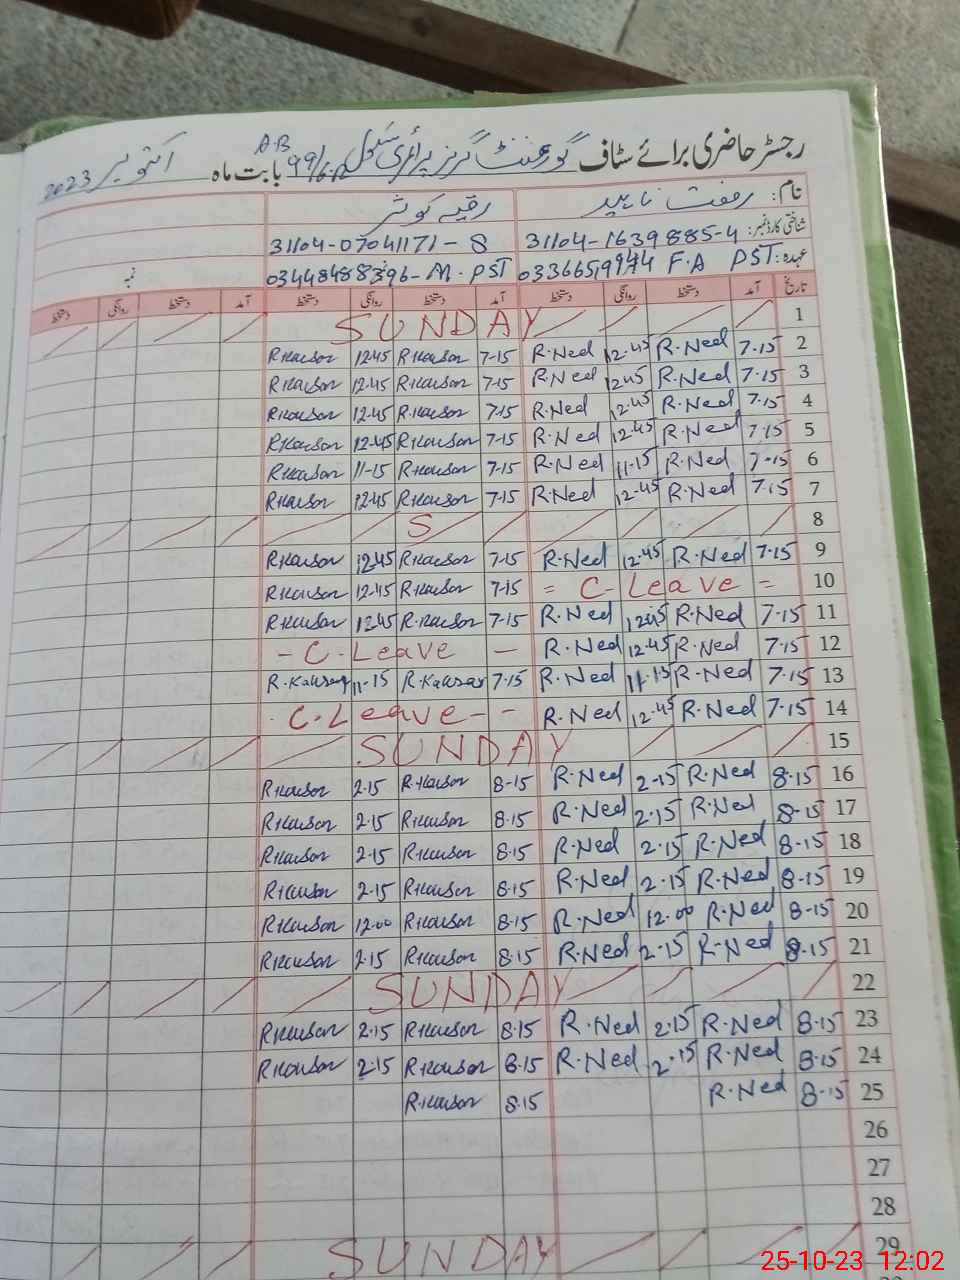 رجسٹر حاضری برائے سٹاف گورنمنٹ گرلز پرائمری سکول 99/6.R A-B بابت ماہ اکتوبر 2023
نام: رفعت ناہید رقیہ کوثر
شناختی کارڈ نمبر: 31104-1639885-4 31104-07041171-8
عہدہ: PST F.A PST
تاریخ آمد دستخط روانگی دستخط آمد دستخط روانگی دستخط آمد دستخط روانگی دستخط
1 SUNDAY
2 7-15 R.Ned 12-45 R.Ned 7-15 R.Kausar 12.45 R.Kausar
3 7.15 R.Ned 12.45 R.Ned 7.15 R.Kausar 12.45 R.Kausar
4 7.15 R.Ned 12.45 R.Ned 7.15 R.Kausar 12.45 R.Kausar
5 7.15 R.Ned 12-45 R.Ned 7-15 R.Kausar 12.45 R.Kausar
6 7-15 R.Ned 11-15 R.Ned 7-15 R.Kausar 11-15 R.Kausar
7 7.15 R.Ned 12-45 R.Ned 7-15 R.Kausar 12.45 R.Kausar
8 S
9 7.15 R.Ned 12.45 R.Ned 7-15 R.Kausar 12.45 R.Kausar
10 = C-Leave = 7-15 R.Kausar 12.45 R.Kausar
11 7-15 R.Ned 12.45 R.Ned 7-15 R.Kausar 12.45 R.Kausar
12 7-15 R.Ned 12.45 R.Ned - C.Leave -
13 7-15 R.Ned 11.15 R.Ned 7-15 R.Kausar 11-15 R.Kausar
14 7.15 R.Ned 12.45 R.Ned C.Leave - -
15 SUNDAY
16 8.15 R.Ned 2-15 R.Ned 8-15 R.Kausar 2.15 R.Kausar
17 8-15 R.Ned 2.15 R.Ned 8.15 R.Kausar 2.15 R.Kausar
18 8-15 R.Ned 2.15 R.Ned 8.15 R.Kausar 2.15 R.Kausar
19 8-15 R.Ned 2.15 R.Ned 8.15 R.Kausar 2.15 R.Kausar
20 8-15 R.Ned 12.00 R.Ned 8.15 R.Kausar 12.00 R.Kausar
21 8.15 R.Ned 2.15 R.Ned 8.15 R.Kausar 2.15 R.Kausar
22 SUNDAY
23 8.15 R.Ned 2.15 R.Ned 8.15 R.Kausar 2.15 R.Kausar
24 8.15 R.Ned 2.15 R.Ned 8.15 R.Kausar 2.15 R.Kausar
25 8-15 R.Ned 8.15 R.Kausar
26
27
28
29 SUNDAY
25-10-23 12:02